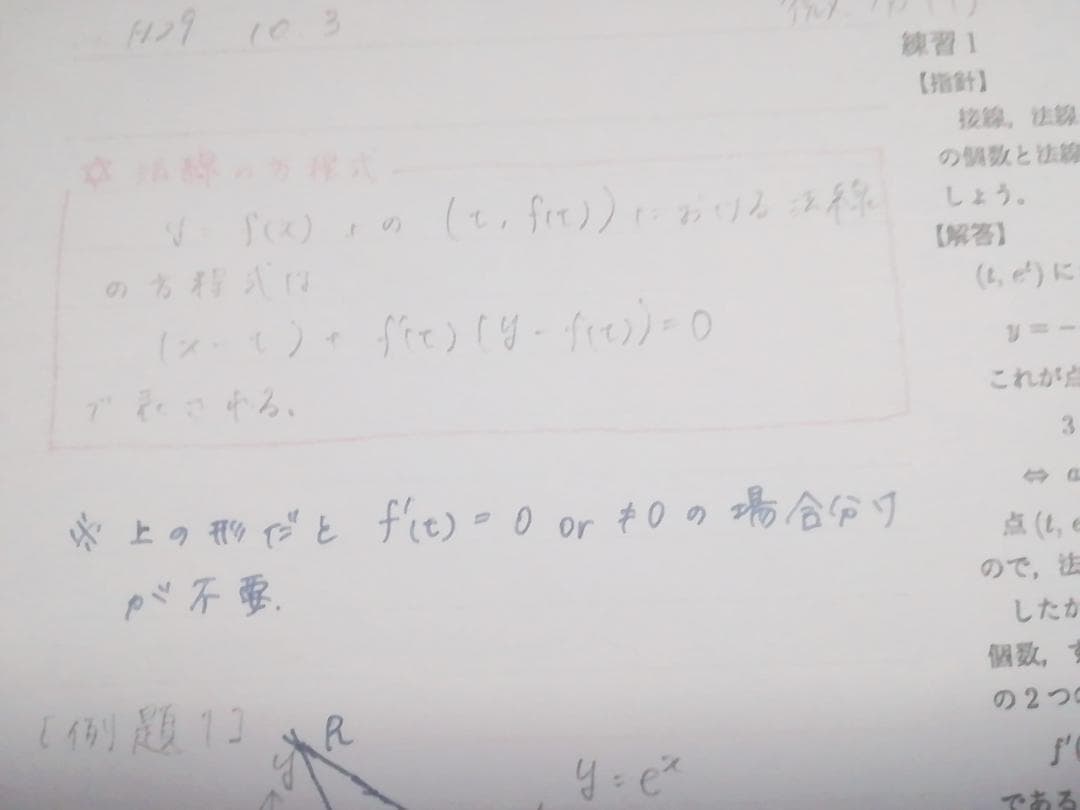 H29 10.3
☆ 法線の方程式
y=f(x) 上の (t, f(t)) における法線
の方程式は
(x-t) + f'(t)(y-f(t))=0
で表される。
※ 上の形だと f'(t)=0 or ≠0 の場合分け
が不要.
[例題1]
R
y
y=e^x
練習1
【指針】
接線，法線
の個数と法線
しょう。
【解答】
(t, e^t) に
y=-
これが点
3
⇔
点(t, e
ので，法
したが
個数，す
の2つの
f'(
である